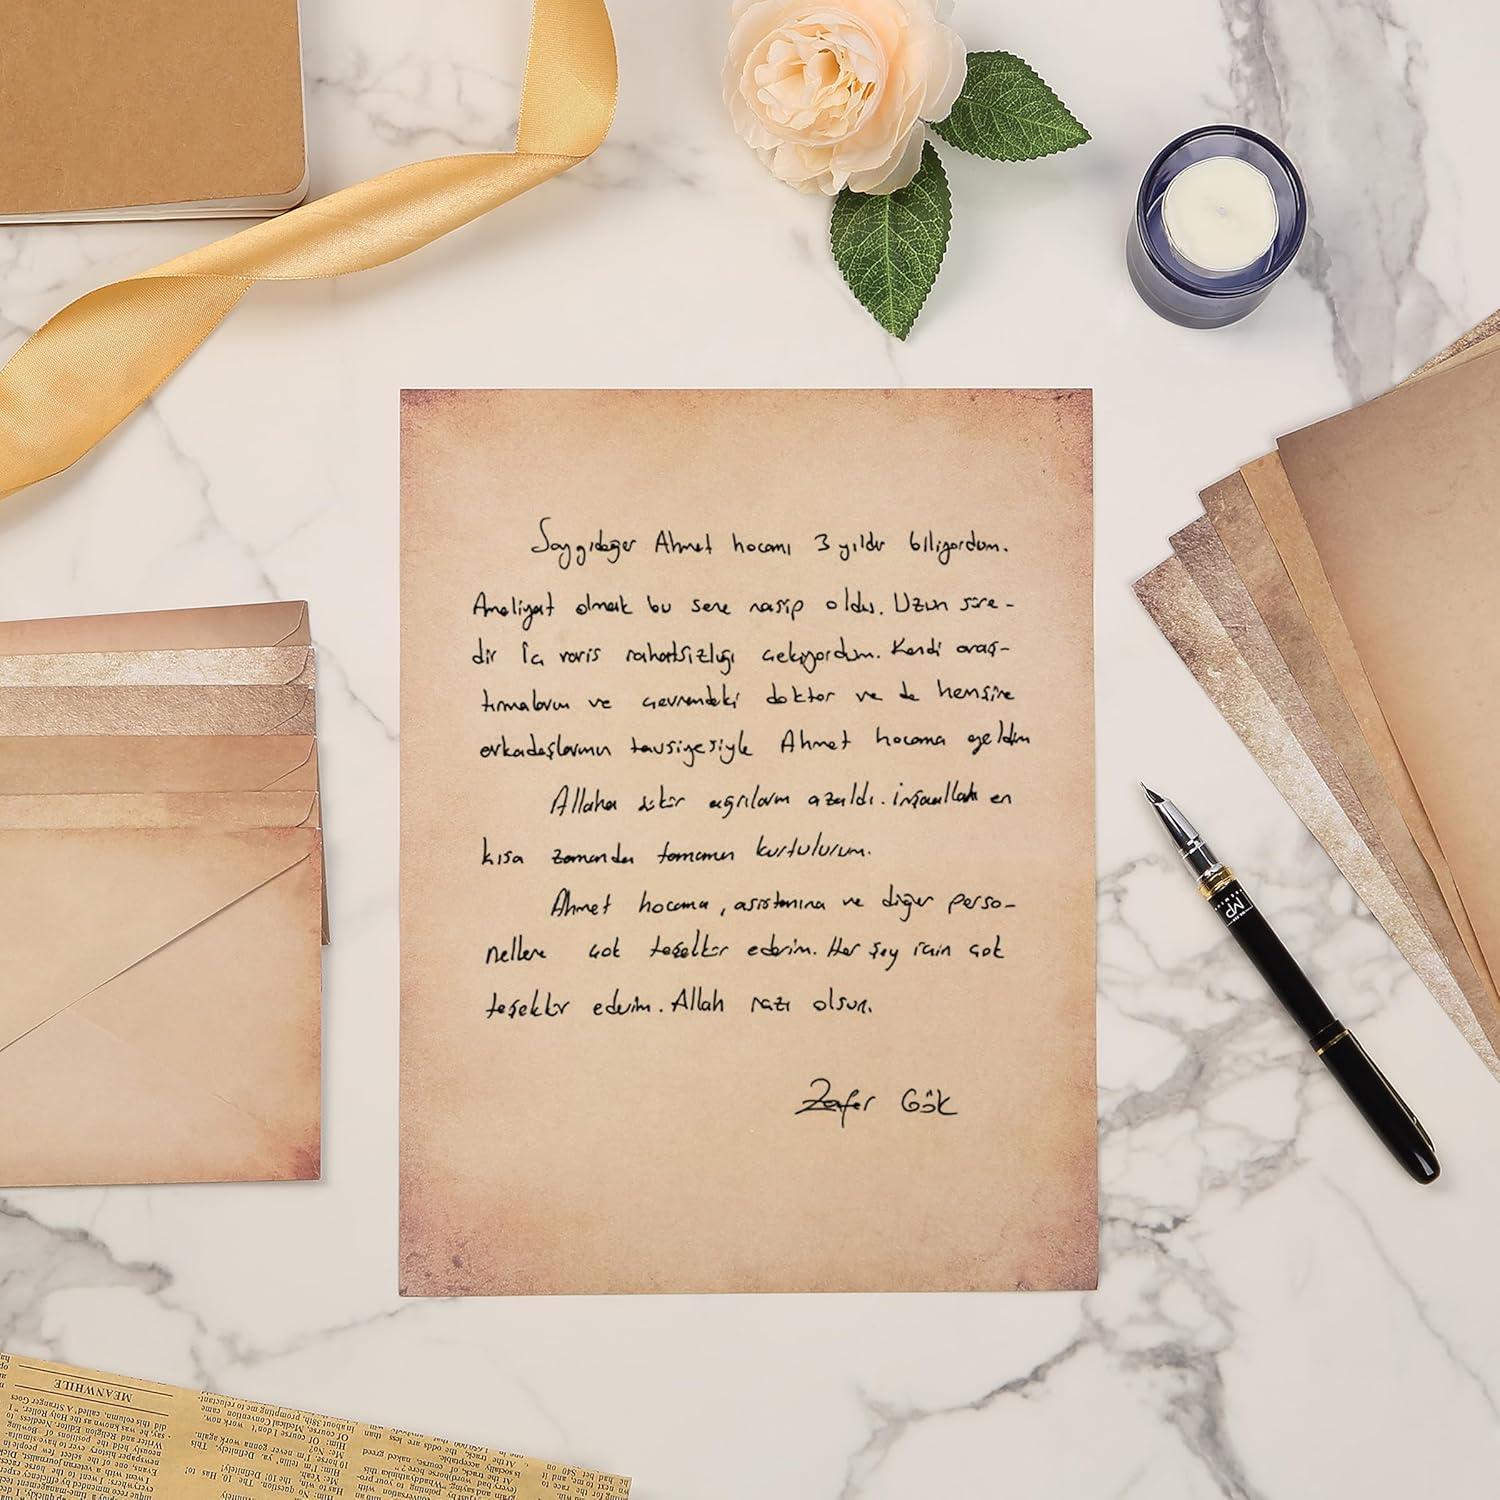 Saygıdeğer Ahmet hocamı 3 yıldır biliyordum.
Ameliyat olmak bu sene nasip oldu. Uzun süre-
dir İç varis rahatsızlığı çekiyordum. Kendi araş-
tırmalarım ve çevremdeki doktor ve de hemşire
arkadaşlarımın tavsiyesiyle Ahmet hocama geldim
Allaha şükür ağrılarım azaldı. inşaallah en
kısa zamanda tamamen kurtulurum.
Ahmet hocama, asistanına ve diğer perso-
nellere çok teşekkür ederim. Her şey için çok
teşekkür ederim. Allah razı olsun.
Zafer Gök
MP
MEANWHILE